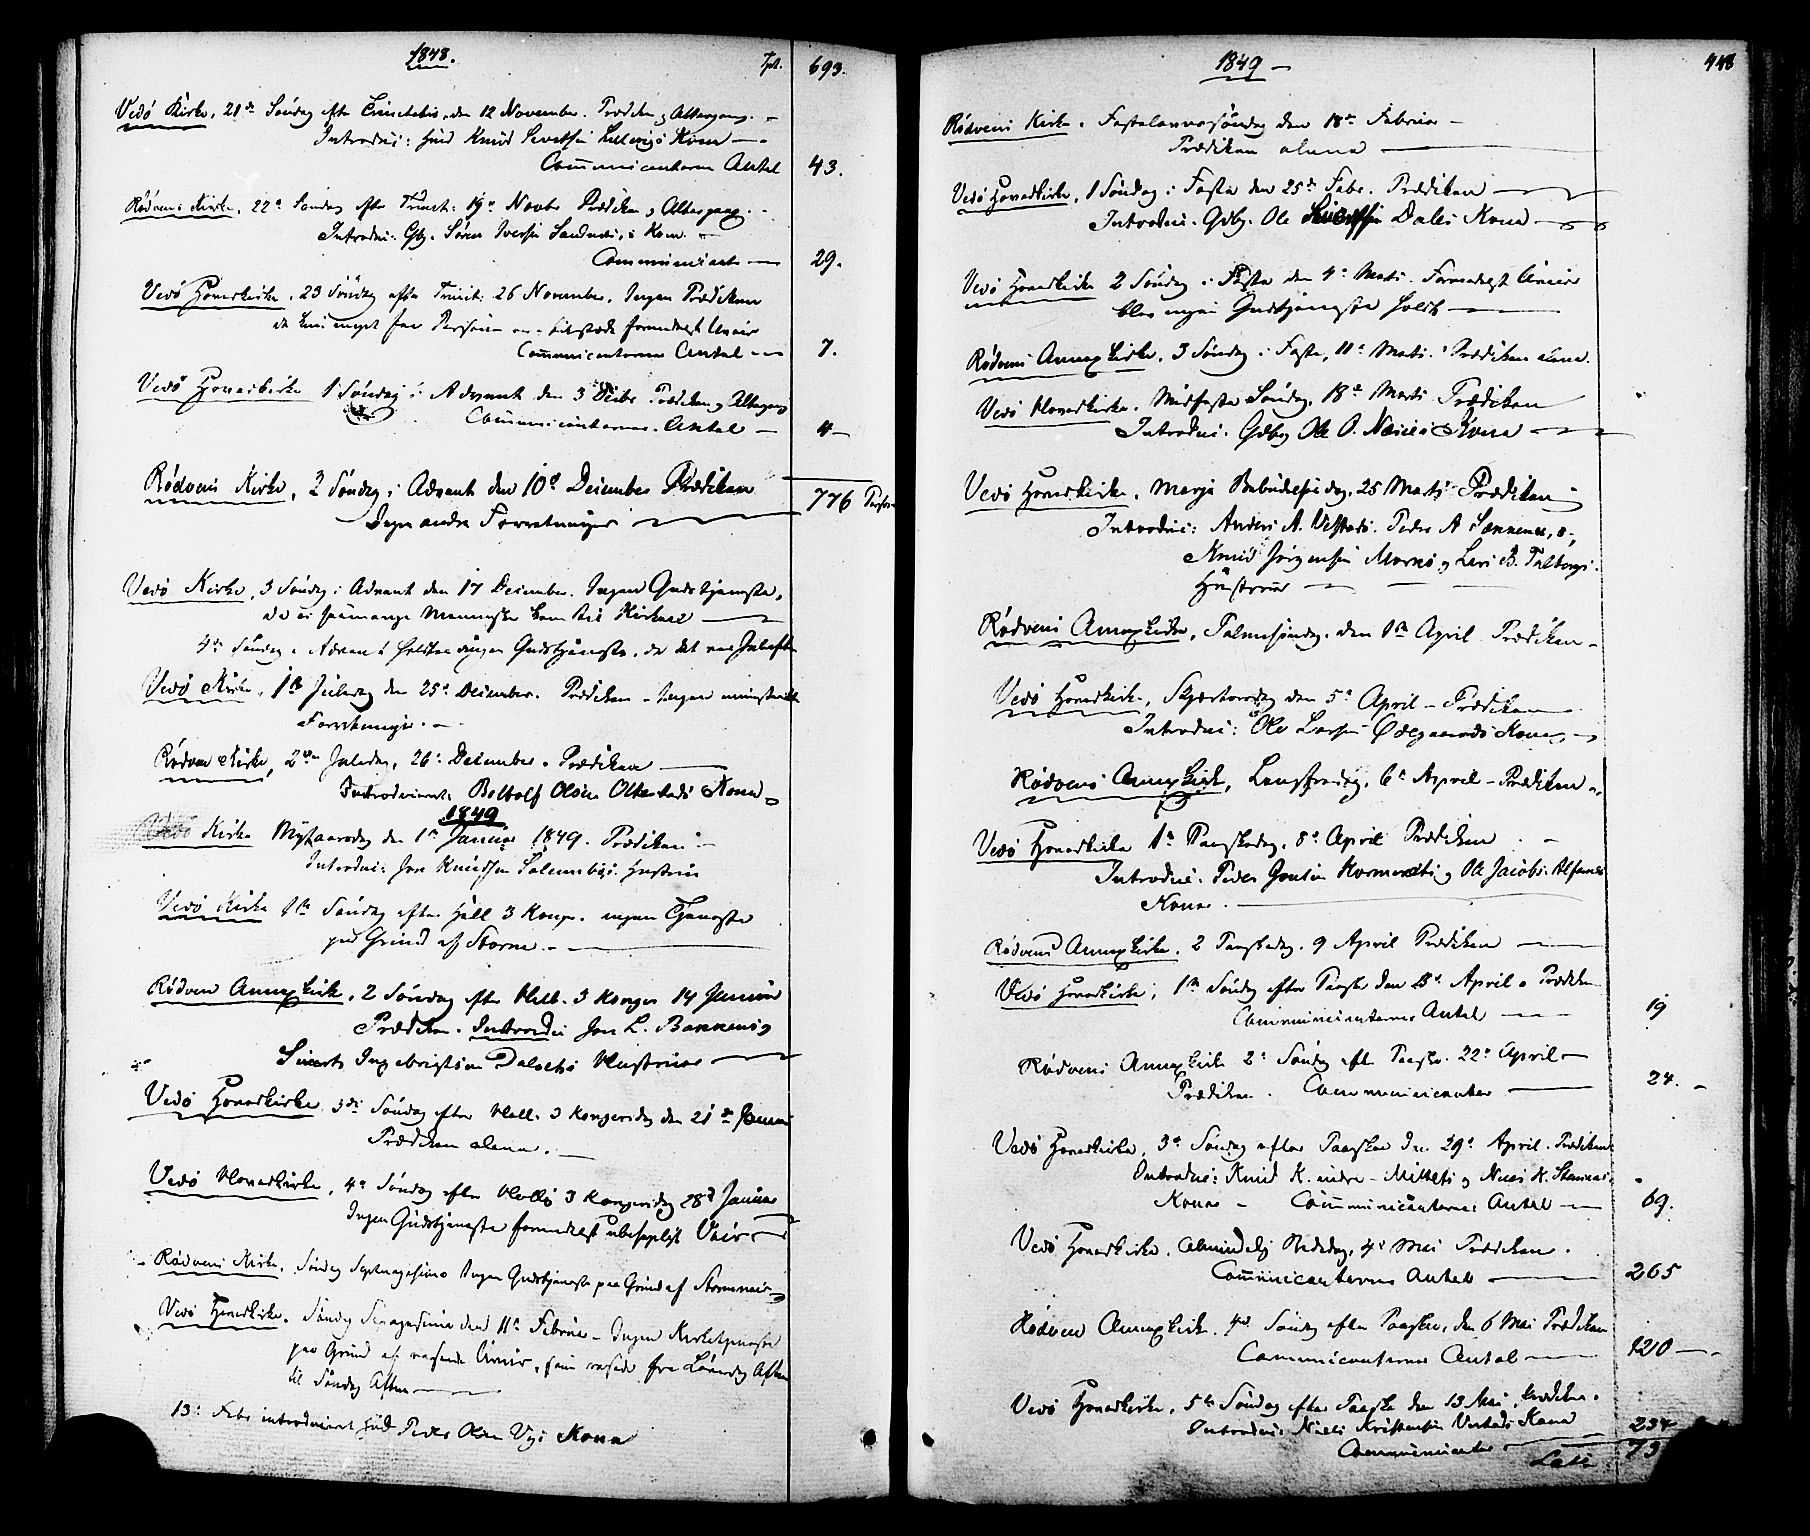 1848.
Tpt. 693.
Vedø Kirke, 21de Søndag efter Trinitatis, den 12 November. Prædiken og Altergang. -
Introduc: Huusmd Knud Sivertsen Kone -
Communicanternes Antal 43.
Rødvens Kirke, 22de Søndag efter Trinit: 19de Novbr Prædiken og Altergang. -
Introduc: Gbr. Søren Iversen Sandnæs's Kone -
Communicant - 29.
Vedø Hovedkirke, 23 Søndag efter Trinit: 26 November. Ingen Prædiken
da kun meget faa Personer vare tilstæde formedelst Uveir
Communicanternes Antal - 7.
Vedø Hovedkirke 1 Søndag i Advent den 3 Decbr Prædiken og Altergang
Communicanternes Antal - 4 -
Rødvens Kirke, 2 Søndag i Advent den 10de December Prædiken
776 Person
Ingen andre Forretninger
Vedø Kirke, 3 Søndag i Advent den 17 December. Ingen Gudstjeneste,
da ei saamange Mennesker kom til Kirken
4de Søndag i Advent holdtes ingen Gudstjeneste, da det var Juleaften
Vedø Kirke, 1ste Juledag den 25de December. Prædiken - Ingen ministerielle
Forretninger. -
Rødven Kirke, 2den Juledag, 26de December. Prædiken
Introduceret: Botolf Olsen Kone
1849
Vedø Kirke Nytaarsdag den 1ste Januar 1849. Prædiken -
Introduc: Jon Knudsen Hustrue
Vedø Kirke 1ste Søndag efter Hell. 3 Konger. ingen Tjeneste
paa Grund af Storm -
Rødven Annexkirke, 2 Søndag efter Hell. 3 Konger 14 Januar
Prædiken. Introduc: Jon L. og
Siverts Ingebrigtsen Hustruer
Vedø Hovedkirke 3die Søndag efter Hell. 3 Kongersdag den 21de Januar
Prædiken alene. -
Vedø Hovedkirke, 4de Søndag efter Hellig 3 Kongersdag 28de Januar
Ingen Gudstjeneste formedelst ubehageligt Veir
Rødvens Kirke. Søndag Septuagesima Ingen Gudstjeneste paa Grund af Stormveir
Vedø Hovedkirke. Søndag Sexagesima den 11te Februar - Ingen Kirketjeneste
paa Grund af rasende Uveir, som rasede fra Løverdag Aften
til Søndag Aften
13de Febr introduceret Huusmd Peder Olsen Kone
1849 -
448
Rødvens Kirke. Fastelavnssøndag den 18de Februar -
Prædiken alene
Vedø Hovedkirke, 1 Søndag i Faste den 25de Febr. Prædiken
Introduc: Gdbr. Ole Dales Kone
Vedø Hovedkirke 2 Søndag i Faste den 4de Marts. Formedelst Uveir
blev ingen Gudstjeneste holdt
Rødvens Annexkirke, 3 Søndag i Faste, 11te Marts. Prædiken alene.
Vedø Hovedkirke. Midfaste Søndag, 18de Marts Prædiken
Introduc: Gdbr Ole O. Næsses Kone
Vedø Hovedkirke, Mariæ Bebudelsesdag, 25 Marts Prædiken
Introduc: Anders A. Peder A. og
Knud Jørgensen og Lars B.
Hustruer
Rødvens Annexkirke, Palmesøndag, den 1ste April Prædiken -
Vedø Hovedkirke, Skjærtorsdag den 5te April - Prædiken
Introduc: Ole Larsen Ødegaards Kone
Rødvens Annexkirke, Langfredag, 6te April - Prædiken
Vedø Hovedkirke 1ste Paaskedag, 8de April Prædiken
Introduc: Peder og Ole Jacobs. Alfarnes
Koner.
Rødvens Annexkirke. 2 Paaskedag. 9 April Prædiken
Vedø Hovedkirke, 1ste Søndag efter Paaske den 15de April Prædiken
Communicanternes Antal 19
Rødvens Annexkirke 2de Søndag eft. Paaske. 22de April -
Prædiken. Communicanter 24. -
Vedø Hovedkirke, 3de Søndag efter Paaske den 29de April. Prædiken
Introduc: Knud K. og K.
Koner - Communicanternes Antal 69.
Vedø Hovedkirke. Almindelig Bededag, 4de Mai Prædiken.
Communicanternes Antal 265
Rødven Annexkirke. 4de Søndag efter Paaske, den 6 Mai Prædiken
Communicanternes Antal 120
Vedø Hovedkirke, 5te Søndag efter Paaske den 13 Mai, Prædiken.
Introduc: Niels Kristensen Kone
Communicanter 234
Lats 73